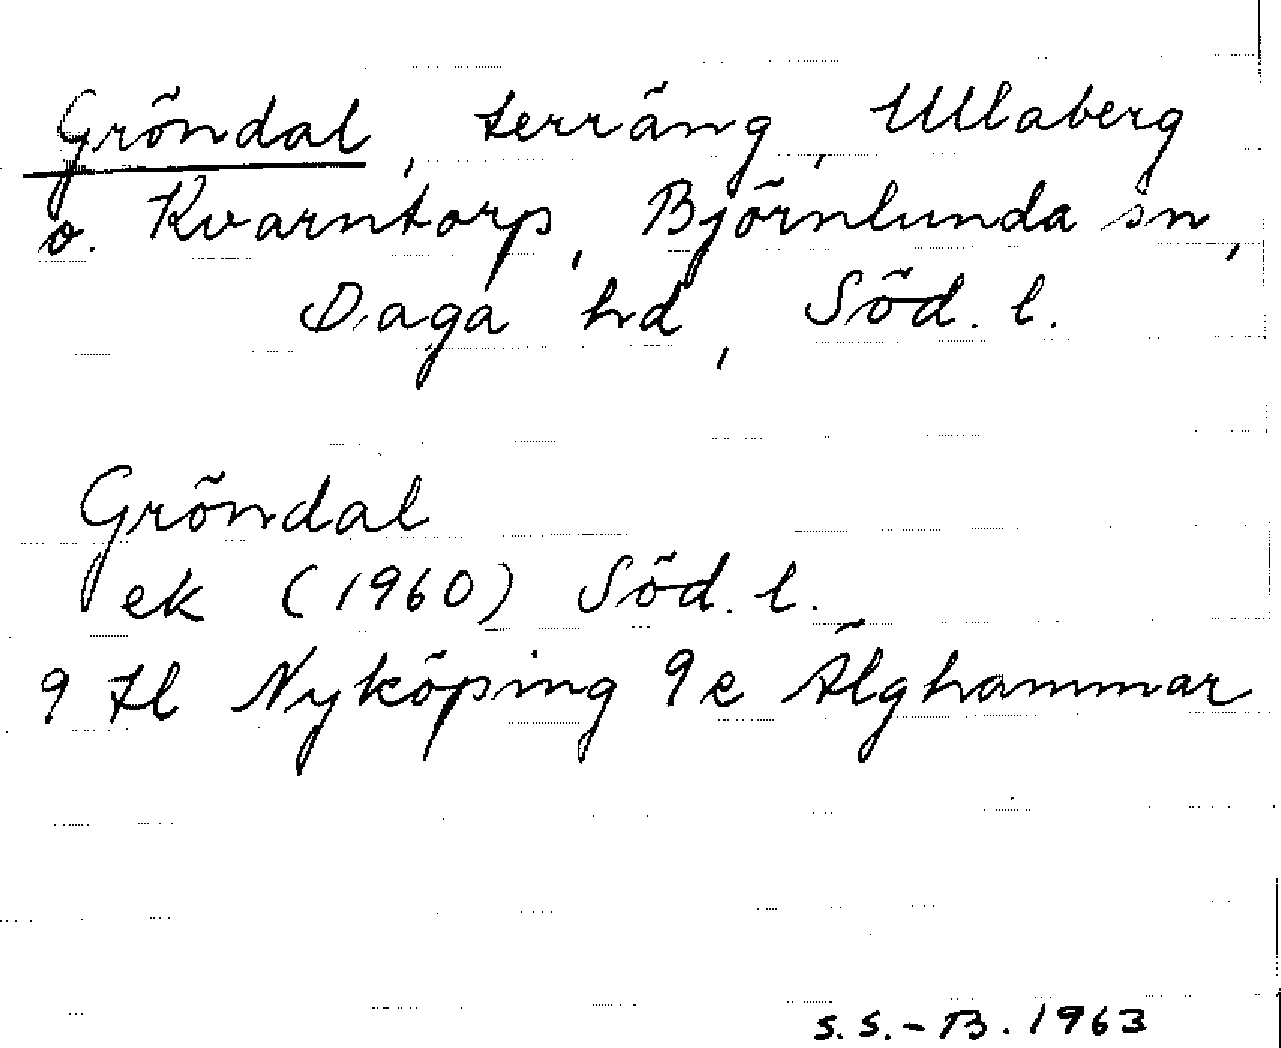 Gröndal, terräng, Ullaberg
o. Kvarntorp, Björnlunda sn,
Daga hd, Söd. l.
Gröndal
ek (1960) Söd. l.
9 tl Nyköping 9e Älghammar
S. S.-B. 1963